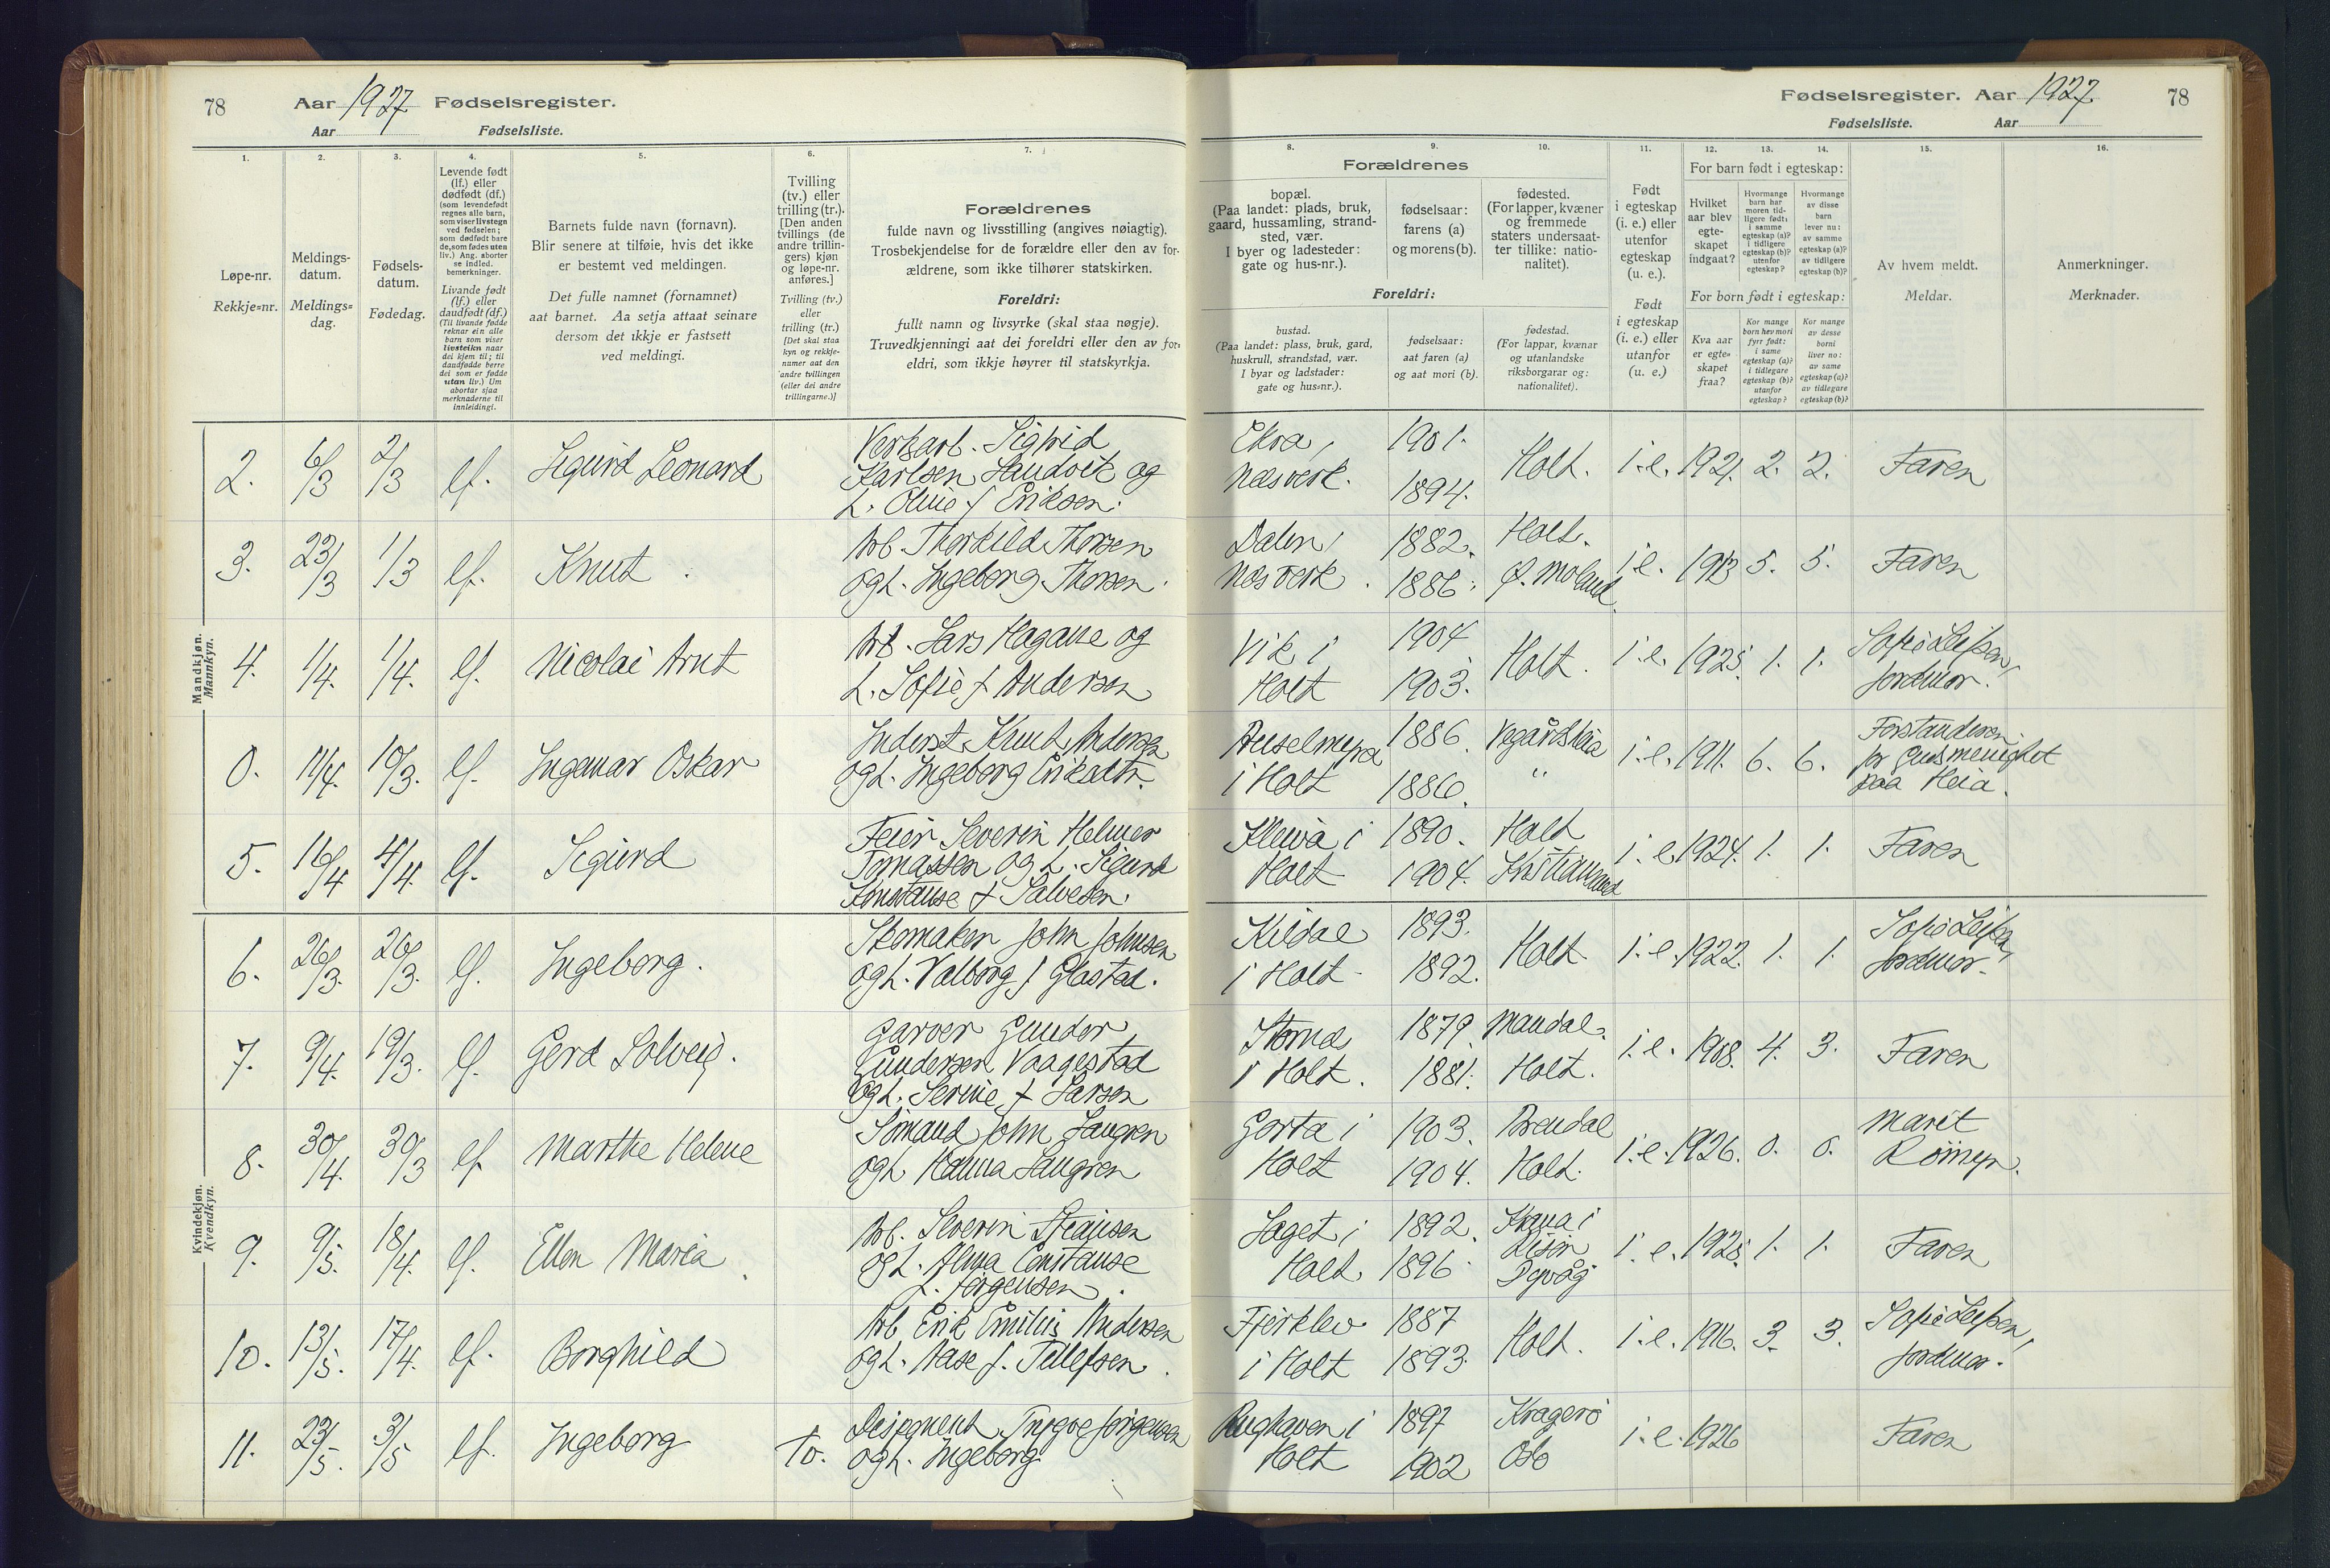 78 Aar 1927 Fødselsregister.
Aar Fødselsliste.
Fødselsregister. Aar 1927. 78
Fødselsliste. Aar
1.
Løpe-nr.
Rekkje-nr.
2.
Meldings-
datum.
Meldings-
dag.
3.
Fødsels-
datum.
Fødedag.
4.
Levende født
(lf.) eller
dødfødt (df.)
(som levendefødt
regnes alle barn,
som viser livstegn
ved fødselen;
som dødfødt bare
de, som fødes uten
liv.) Ang. aborter
se indled.
bemerkninger.
Livande født
(lf.) eller
daudfødt (df.)
(Til livande fødde
reknar ein alle
barn som viser
livsteikn naar
dei kjem til; til
daudfødde berre
dei som er fødde
utan liv.) Um
abortar sjaa
merknaderne til
innleidingi.
5.
Barnets fulde navn (fornavn).
Blir senere at tilføie, hvis det ikke
er bestemt ved meldingen.
Det fulle namnet (fornamnet)
aat barnet. Aa setja attaat seinare
dersom det ikkje er fastsett
ved meldingi.
6.
Tvilling
(tv.) eller
trilling (tr.).
[Den anden
tvillings (de
andre trillin-
gers) kjøn
og løpe-nr.
anføres.]
Tvilling (tv.)
eller
trilling (tr.)
[Det skal staa
kyn og rekkje-
numer aat den
andre tvillingen
(eller dei andre
trillingarne.)]
7.
Forældrenes
fulde navn og livsstilling (angives nøiagtig).
Trosbekjendelse for de forældre eller den av for-
ældrene, som ikke tilhører statskirken.
Foreldri:
fullt namn og livsyrke (skal staa nøgje).
Truvedkjenningi aat dei foreldri eller den av for-
eldri, som ikkje høyrer til statskyrkja.
8.
Forældrenes
bopæl.
(Paa landet: plads, bruk,
gaard, hussamling, strand-
sted, vær.
I byer og ladesteder:
gate og hus-nr.).
Foreldri:
bustad.
(Paa landet: plass, bruk, gard,
huskrull, strandstad, vær.
I byar og ladstader:
gate og hus-nr.).
9.
fødselsaar:
farens (a)
og morens (b).
fødselsaar:
aat faren (a)
og aat mori (b).
10.
fødested.
(For lapper, kvæner
og fremmede
staters undersaat-
ter tillike: natio-
nalitet).
fødestad.
(For lappar, kvænar
og utanlandske
riksborgarar og:
nationalitet).
11.
Født
i egteskap
(i. e.) eller
utenfor
egteskap
(u. e.).
Født
i egteskap
(i. e.) eller
utanfor
(u. e.)
12. 13. 14.
For barn født i egteskap:
Hvilket
aar blev
egte-
skapet
indgaat?
Hvormange
barn har
moren tid-
ligere født:
i samme
egteskap (a)?
i tidligere
egteskap (b)?
utenfor
egteskap?
Hvormange
av disse
barn
lever nu:
av samme
egteskap (a)?
av tidligere
egteskap (b)?
For born født i egteskap:
Kva aar
er egte-
skapet
fraa?
Kor mange
born hev mori
fyrr født:
i same
egteskap (a)?
i tidlegare
egteskap (b)?
utanfor
egteskap?
Kor mange
av desse
borni
liver no:
av same
egteskap (a)?
av tidlegare
egteskap (b)?
15.
Av hvem meldt.
Meldar.
16.
Anmerkninger.
Merknader.
Mandkjøn.
Mannkyn.
2. 6/3 2/3 lf. Sigurd Leonard
Verksarb. Sigfrid
Karlsen Sandvik og
h. Oline f Eriksen.
Ekra, Nesverk. 1901. 1894. Holt. i.e. 1921. 2. 2. Faren
3. 23/3 1/3 lf. Knut.
Arb. Thorkild Thorsen
og h. Ingeborg Thorsen.
Dalen, Nesverk. 1882. 1886. Holt. Ø. Moland. i.e. 1913 5. 5. Faren
4. 1/4. 1/4. lf. Nicolai Arnt
Arb. Lars Hagane og
h. Sofie f Anderson
Vik i Holt 1904 1903. Holt. i.e. 1925. 1. 1. Jordmor.
0. 11/4. 10/3. lf. Ingemar Oskar
Inderst. Knut Anderson
og h. Ingeborg Eriksdtr.
i Holt 1886. 1886. Vegårdsheia " i.e. 1911. 6. 6. Forstanderen
for Gudsmenighet
paa Heia.
5. 16/4 4/4. lf. Sigurd
Feier Severin Helmer
Tomassen og h. Sigurd
Konstanse f Salvesen.
Kleiva i Holt 1890. 1904. Holt Kristiansand i.e. 1924. 1. 1. Faren
Kvindekjøn.
Kvendkyn.
6. 26/3. 26/3. lf. Ingeborg.
Skomaker John Johnsen
og h. Valborg f Glastad.
Kildal i Holt 1893. 1892. Holt i.e. 1922. 1. 1. Jordmor.
7. 9/4. 19/3. lf. Gerd Solveig.
Garver Gunder
Gundersen Vaagestad
og h. Serine f Larsen
i Holt. 1879. 1881. Mandal. Holt. i.e. 1908. 4. 3. Faren
8. 30/4. 30/3 lf. Marthe Helene
Sömand John Laugren
og h. Hanna Laugren
Gorta i Holt 1903. 1904. Arendal Holt. i.e. 1926. 0. 0. Marit
9. 9/5. 18/4. lf. Ellen Maria.
Arb. Severin
og h. Alma Constanse
f. Jörgensen.
Laget i Holt 1892. 1896. Dypvåg i.e. 1925. 1. 1. Faren
10. 13/5. 17/4. lf. Borghild
Arb Erik Emilius Andersen
og h. Aase f. Tellefsen.
Fjerklev i Holt 1887 1893. Holt. i.e. 1916. 3. 3. Jordmor.
11. 23/5. 3/5 lf. Ingeborg to.
Disponent Trygve Jörgensen
og h. Ingeborg
Holt 1897 1902 Kragerö Oslo i.e. 1926 Faren